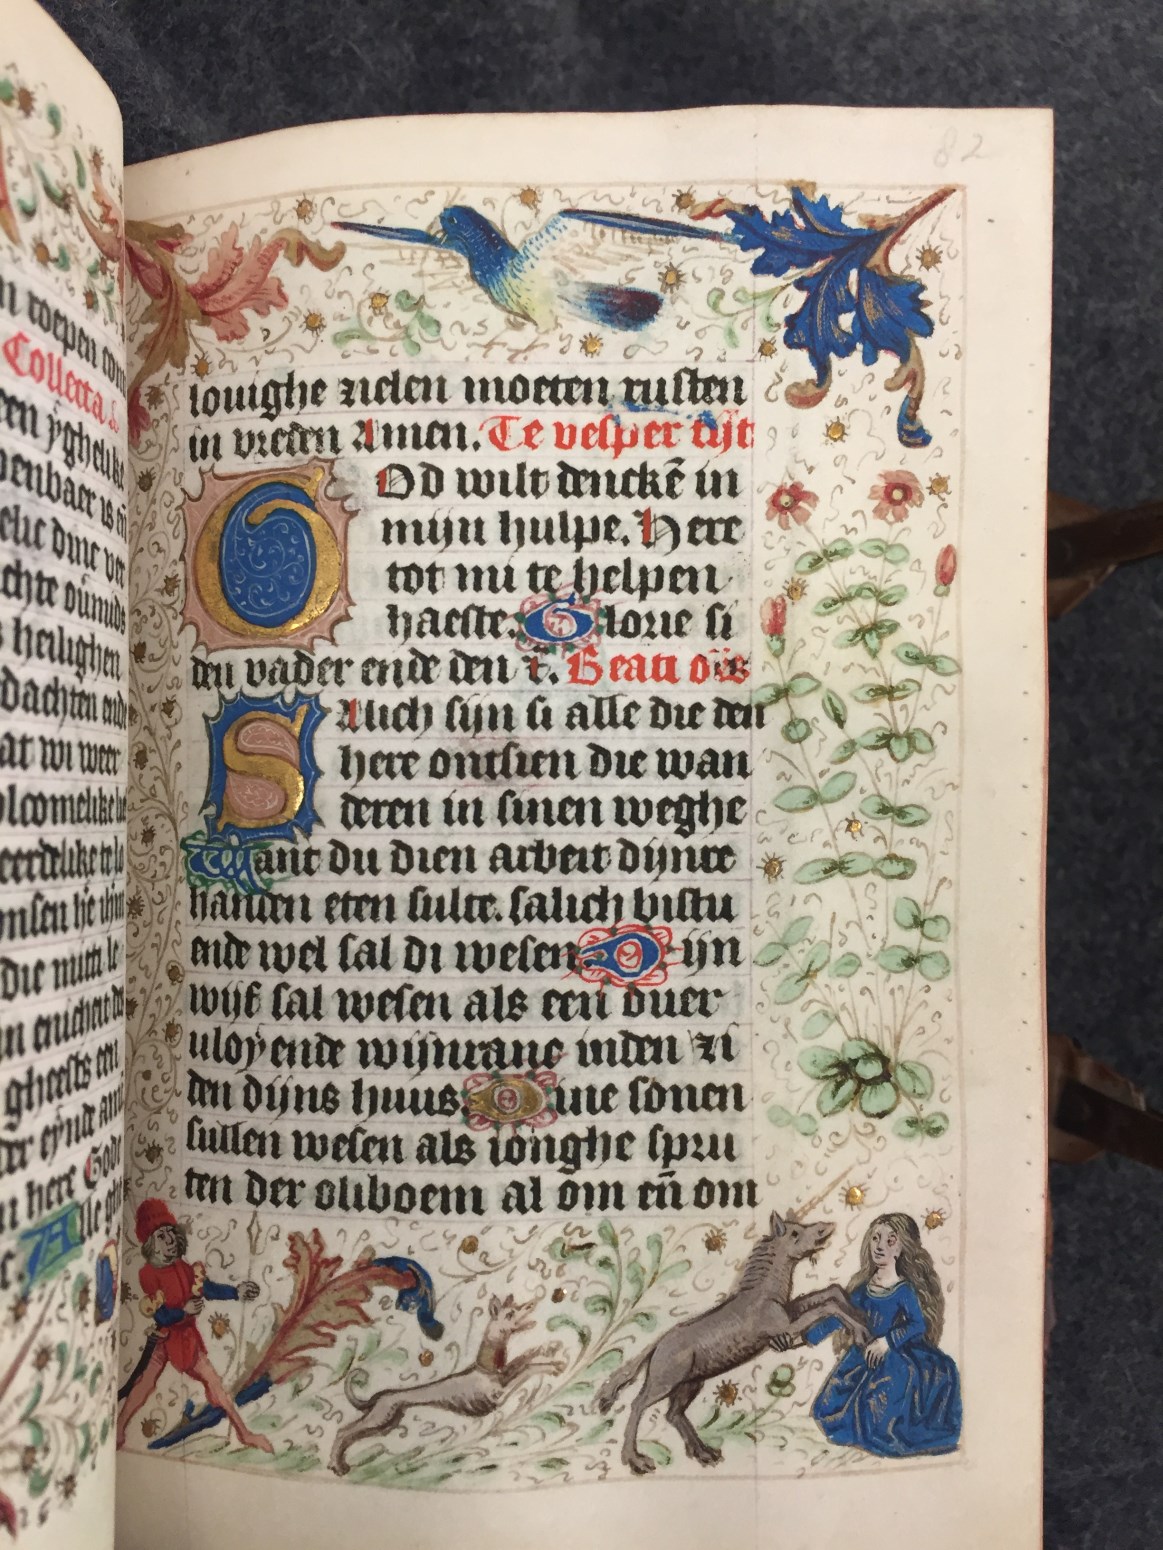 82
louighe zielen moeten rusten
in vreden Amen. Te vesper tijt
GOd wilt denckē in
mijn hulpe. Here
tot mi te helpen
haeste. Glorie si
den vader ende den z̄. Beati oēs
SAlich sijn si alle die den
here ontsien die wan
deren in sinen weghe
Want du dien arbeit dijnre
handen eten sulte. salich bistu
ende wel sal di wesen Dijn
wijf sal wesen als een ouer
uloyende wijnranc inden zi
den dijns huus Dine sonen
sullen wesen als ionghe spru
ten der oliboem al om eñ om
n roepen
Collecta
een yghelike
penbaer is eñ
elic dinc ver
chte
heilighen
dachten ende
at wi weer
olcomelike
eerdelike te lo
die mitti le
gheests een
der eynde
here Gode
Alle